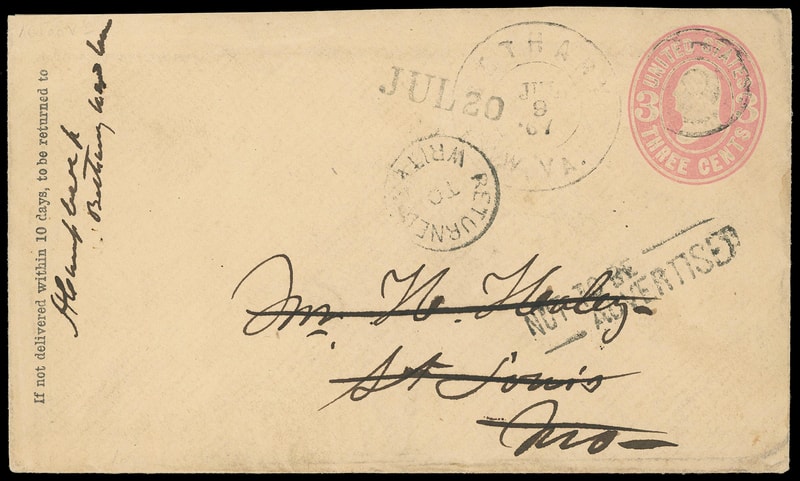 If not delivered within 10 days, to be returned to
A Campbell
Bethany
JUL 20
W. VA.
9
67
UNITED STATES
3 3
THREE CENTS
RETURNED TO WRITER
NOT TO BE
ADVERTISED
Mr. H. Healey
St Louis
Mo